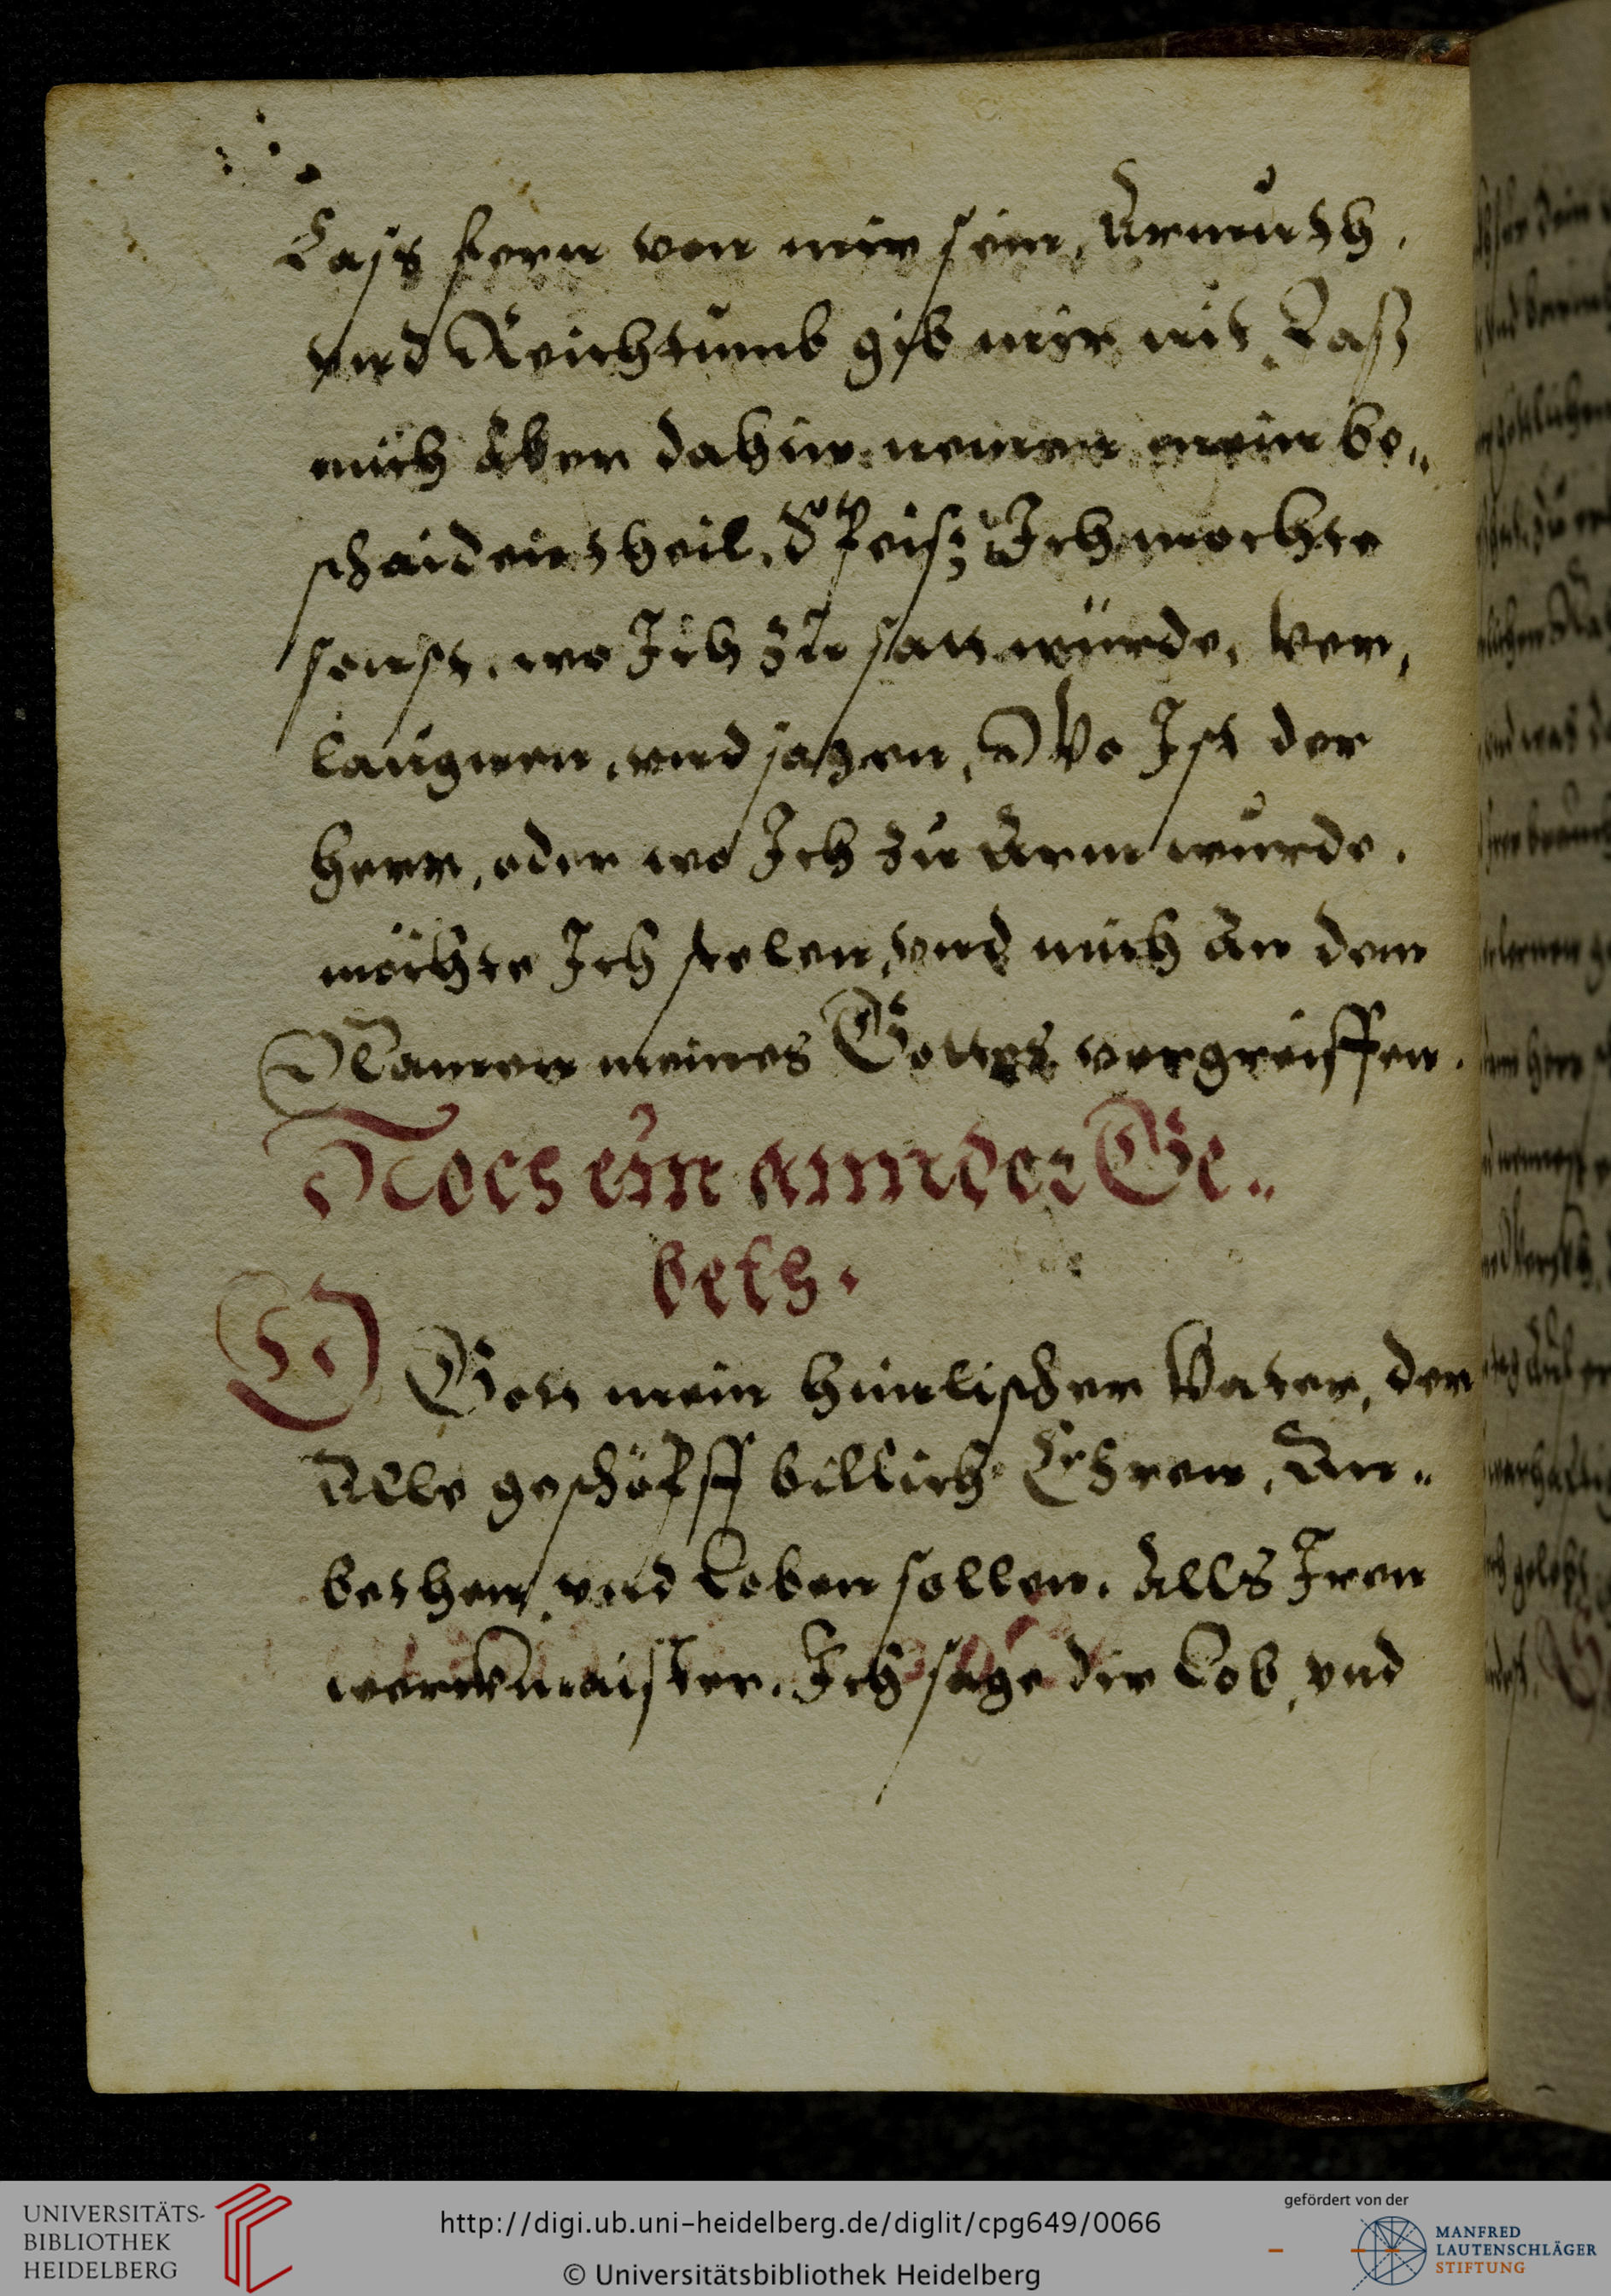 Lass fern von mir sein, Armuth.
vnd Reichtumb gib mir nit, Laß
mich Aber dahin nemen mein be„
schaiden theil, d speiß Ich mochte
sonst, wo Ich zu satt würde, Ver„
laugnen, vnd sagen, Wo Ist der
herr, oder wo Ich zu Arm wurde.
möchte Ich stelen, vnd mich An dem
Namen meines Gottes vergreiffen.
Noch ein annder Ge„
beth.
O Gott mein himlischer Vater, den
Alle geschöpff billich Ehren, An„
bethen, vnd Loben sollen. Alls Iren
werckmaister. Ich sage dir Lob, vnd
UNIVERSITÄTS-
BIBLIOTHEK
HEIDELBERG
http://digi.ub.uni-heidelberg.de/diglit/cpg649/0066
© Universitätsbibliothek Heidelberg
gefördert von der
MANFRED
LAUTENSCHLÄGER
STIFTUNG